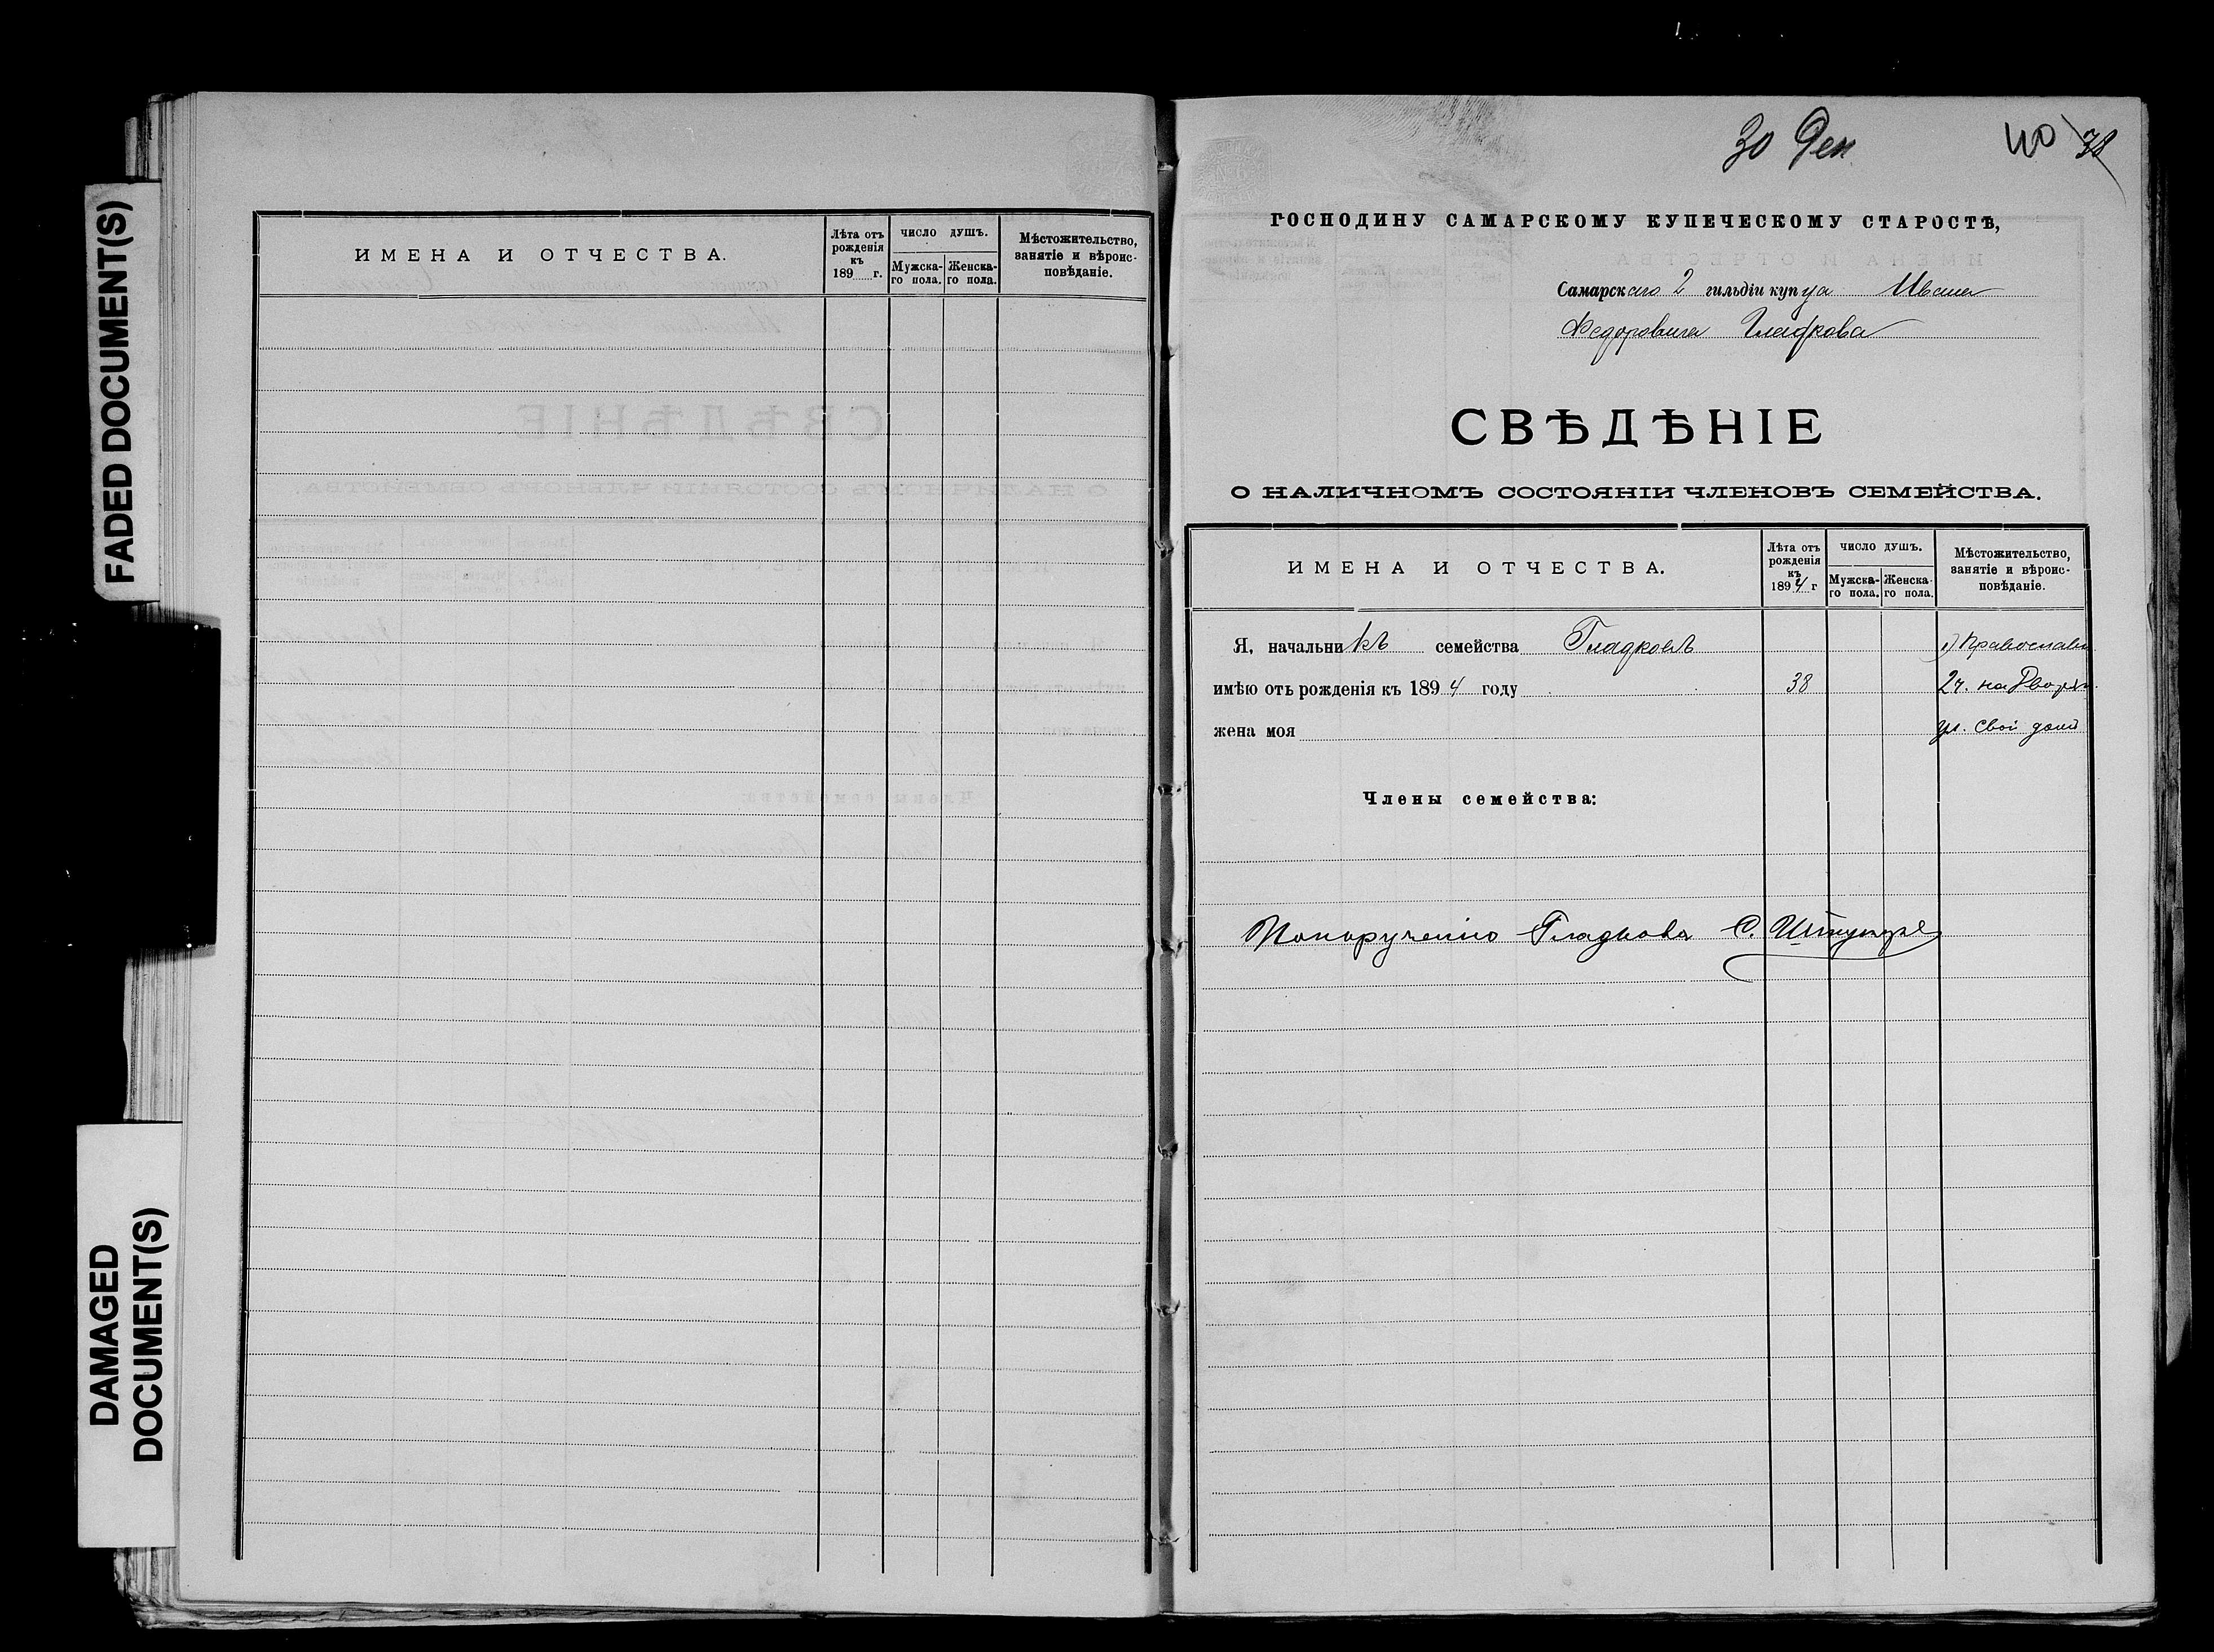 FADED DOCUMENT(S)
DAMAGED
DOCUMENT(S)
ИМЕНА И ОТЧЕСТВА.
Лѣта отъ
рожденія
къ
189 г.
ЧИСЛО ДУШЪ.
Мужска-
го пола.
Женска-
го пола.
Мѣстожительство,
занятіе и вѣроис-
повѣданіе.
30 Дек
40 38
ГОСПОДИНУ САМАРСКОМУ КУПЕЧЕСКОМУ СТАРОСТѢ,
Самарскаго 2 гильдіи купца Ивана
Федоровича Гладкова
СВѢДѢНІЕ
О НАЛИЧНОМЪ СОСТОЯНІИ ЧЛЕНОВЪ СЕМЕЙСТВА.
ИМЕНА И ОТЧЕСТВА.
Лѣта отъ
рожденія
къ
1894 г
ЧИСЛО ДУШЪ.
Мужска-
го пола.
Женска-
го пола.
Мѣстожительство,
занятіе и вѣроис-
повѣданіе.
Я, начальникъ семейства Гладковъ
имѣю отъ рожденія къ 1894 году 38
жена моя
Православн
2 ч. на Дворян.
ул. свой домъ
Члены семейства:
По порученію Гладкова С.